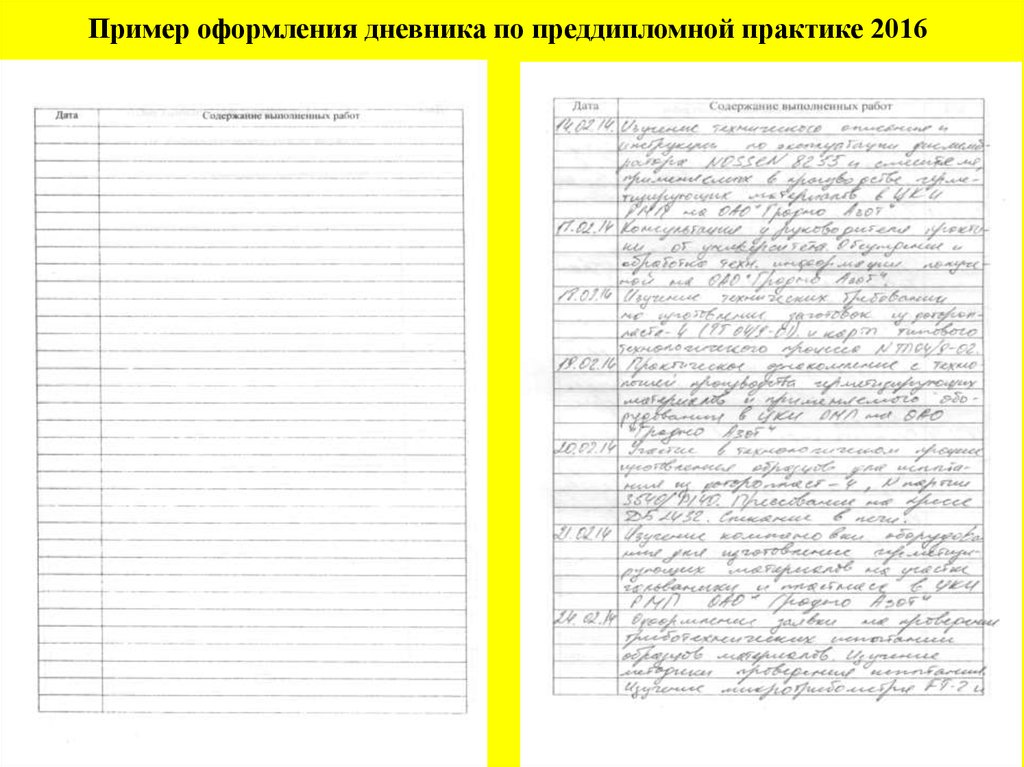 Пример оформления дневника по преддипломной практике 2016
Дата Содержание выполненных работ
Дата Содержание выполненных работ
14.02.14. Изучение технического описания и
инструкции по эксплуатации дисмемб-
ратора NOSSEN 8255 и смесителя,
применяемых в производстве герме-
тизирующих материалов в ЦКИ
РМП на ОАО "Гродно Азот"
17.02.14 Консультация у руководителя практи-
ки от университета. Обсуждение и
обработка техн. информации получе-
ной на ОАО "Гродно Азот".
18.02.14 Изучение технических требований
на изготовление заготовок из фтороп-
ласта-4 и карт типового
технологического процесса N ТП04/8-02.
19.02.14 Практическое ознакомление с техно-
логией производства герметизирующих
материалов и применяемого обо-
рудования в ЦКИ РМП на ОАО
"Гродно Азот"
20.02.14 Участие в технологическом процессе
изготовления образцов для испыта-
ния из фторопласт-4, N партии
Прессование на прессе
ДБ2432. Спекание в печи.
21.02.14 Изучение компановки оборудова
ния для изготовление герметизи-
рующих материалов на участке
гальваники и пластмасс в ЦКИ
РМП ОАО "Гродно Азот"
24.02.14 Оформление заявки на проведение
триботехнических испытаний
образцов материалов. Изучение
методики проведения испытания.
Изучение микротрибометра FT-2 и